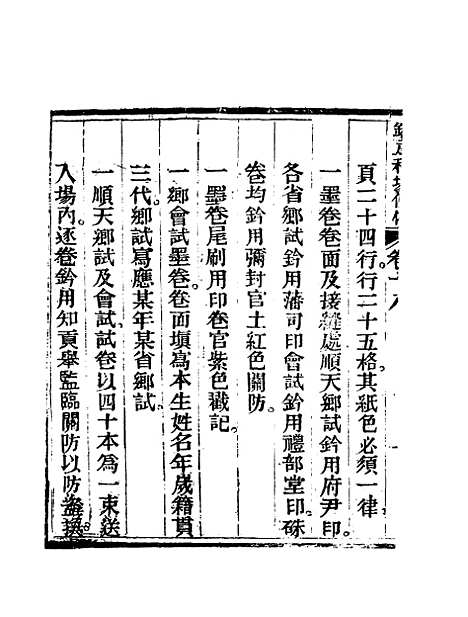 欽定科場條例 卷十八
頁二十四行。行二十五格。其紙色必須一律。
一墨卷卷面及接縫處順天鄉試鈐用府尹印。
各省鄉試鈐用藩司印會試鈐用禮部堂印硃
卷均鈐用彌封官土紅色關防。
一墨卷尾刷用印卷官紫色戳記。
一鄉會試墨卷。卷面填寫本生姓名年歲籍貫
三代。鄉試寫應某年某省鄉試。
一順天鄉試及會試試卷以四十本為一束送
入場內。逐卷鈐用知貢舉監臨關防以防